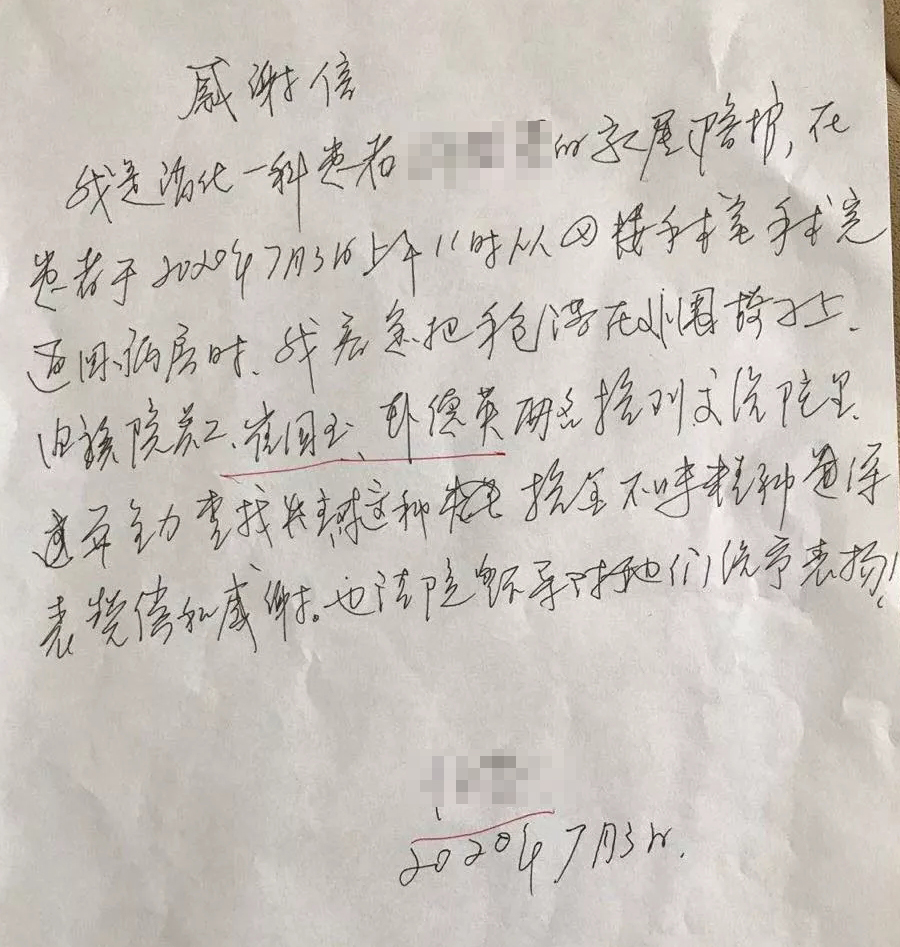 感谢信
我是消化一科患者 的家属陪护,在
患者于2020年7月3日上午11时从四楼手术室手术完
返回病房时.我着急把手包落在 椅子上.
由 院员工、崔国玉、 德英两名捡到交给院里.
全力查找失主 这种 拾金不昧精神
表 和感谢。也请院领导对他们给予表扬!
2020年7月3日.